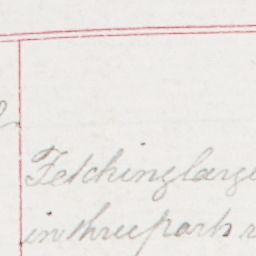 Fetching large
in three parts